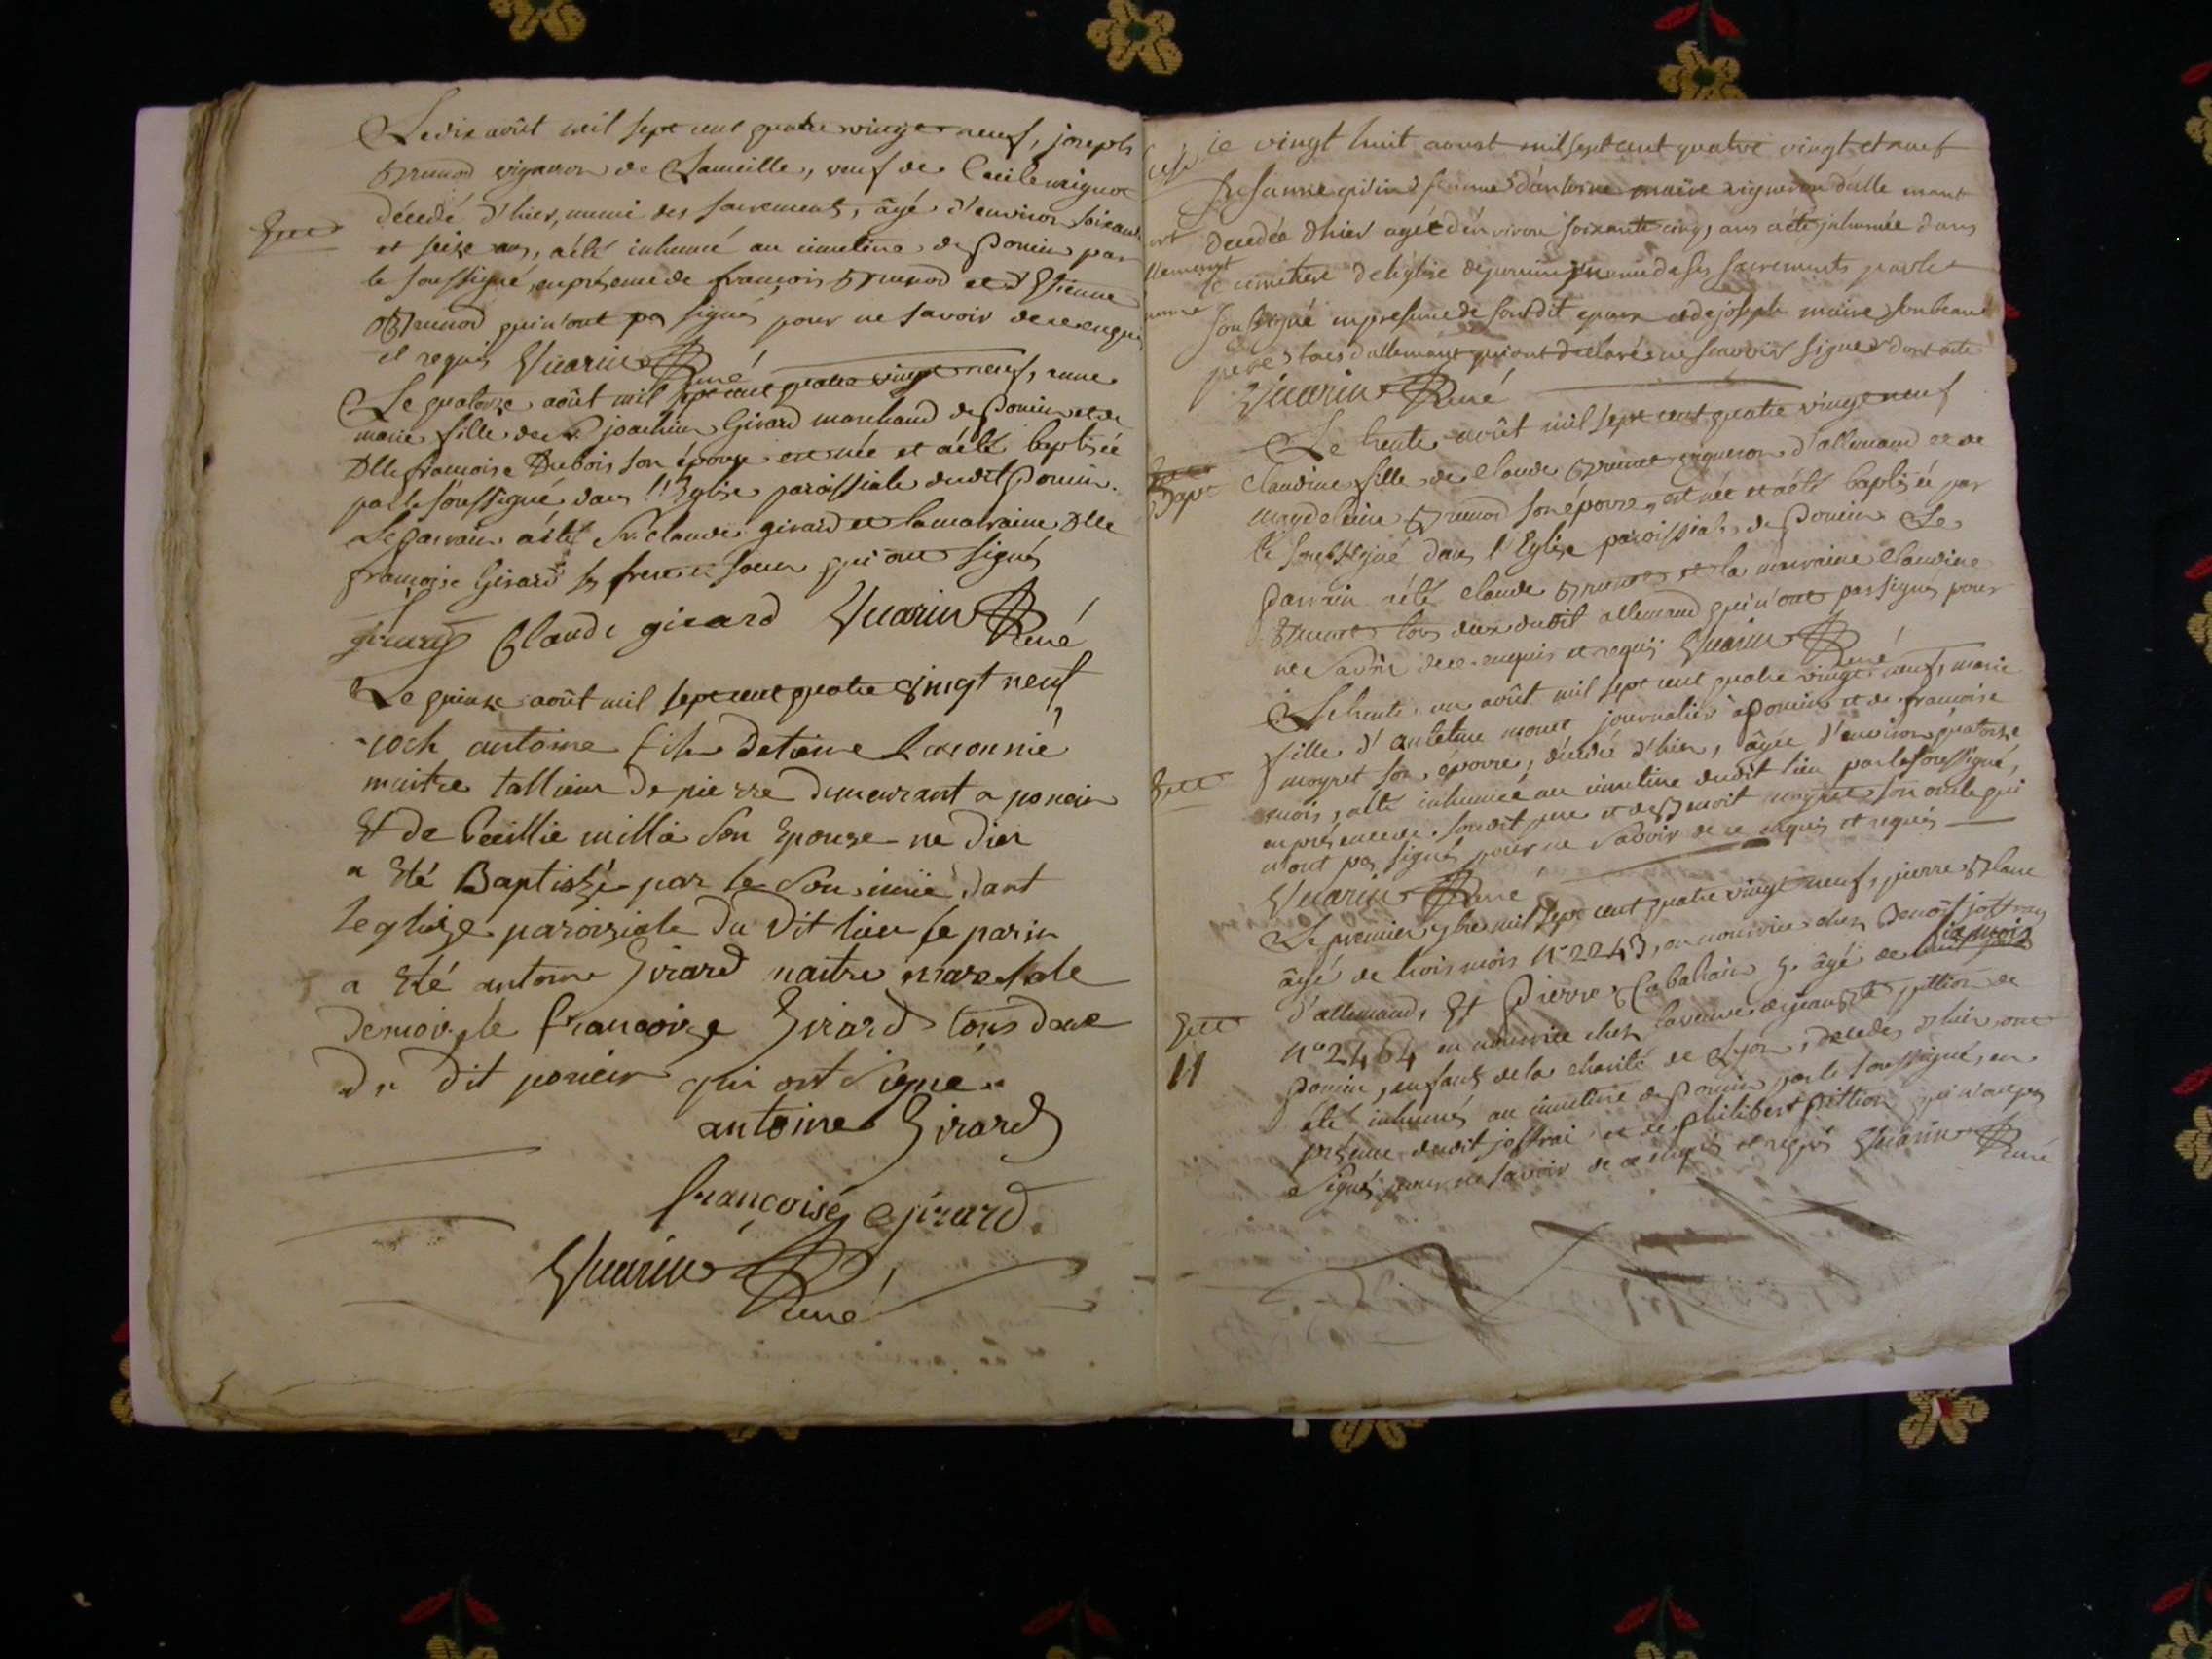 Le dix août mil sept cent quatre vingt neuf, joseph
Brunod vigneron de Lameille, veuf de Cecile mignot
décedé d'hier, muni des sacrements, âgé d'environ soixante
et seize ans, a été inhumé au cimetiere de Poncin par
le soussigné, en présence de françois Brunod et d'Etienne
Brunod qui n'ont pas signés pour ne savoir de ce enquis
et requis Vuarin Curé
Le quatorze août mil sept cent quatre vingt neuf, anne
marie fille de Sr. joachim Girard marchand de Poncin et de
Dlle françoise Dubois son épouse est née et a été baptisée
par le soussigné dans l'Eglise paroissiale dudit Poncin.
Le parrain a été Sr. claude girard et la marraine Dlle
françoise Girard ses frere et soeur qui ont signés
Claude girard Vuarin Curé
Le quinze août mil sept cent quatre vingt neuf
roch antoine fils
maitre tallieur de pierre demeurant a poncin
Et de Ceeillie millia son Epouse ne dier
a Eté Baptissé par le dant
leglisze paroiziale du dit lieu le parin
a Eté antoine Girard maitre
demoizele francoize Girard tous deux
du dit poncin qui ont signé
antoine Girard
françoise girard
Vuarin
Curé
le vingt huit aoust mil sept cent quatre vingt et neuf
femme d'antoine maire vigneron dalle mant
decedée d'hier ageé d'én viron soixante cinq, ans a été jnhumée dans
le cimetiere de léglise de poncin munie de ses sacrements par le
soussigné en presence de son dit epoux et de joseph maire son beau
pere tous d'allemant qui ont declaré ne scavoir signer dont acte
Vuarin Curé
Bapt
Le trente août mil sept cent quatre vingt neuf
claudine fille de claude Brunet vigneron d'allemand et de
magdeleine Brunod son épouse, est née et a été baptisée par
le soussigné dans l'Eglise paroissiale de Poncin. Le
parrain a été claude Brunet et la marraine claudine
Brunet tous deux dudit allemand qui n'ont pas signés pour
ne savoir de ce enquis et requis Vuarin Curé
Le trente un août mil sept cent quatre vingt neuf, marie
fille d'antelme monet journalier à Poncin et de françoise
moyret son épouse, décédée d'hier, âgée d'environ quatorze
mois, a été inhumée au cimetiere dudit lieu par le soussigné,
en présence de son dit pere et de Benoit moyret son oncle qui
n'ont pas signés pour ne savoir de ce enquis et requis
Vuarin Curé
Le premier 7bre mil sept cent quatre vingt neuf, pierre Blanc
âgé de trois mois n° 2243, en nourrice chez Benoît joffray
d'allemand, Et Pierre Cabaliair âgé de
n° 2464 en nourrice chez la veuve de jean Bte. pittion de
Poncin, enfants de la charité de Lyon, décedés d'hier ont
été inhumés au cimetiere de Poncin par le soussigné, en
présence dudit joffrai et de philibert pittion qui n'ont pas
signés pour ne savoir de ce enquis et requis Vuarin Curé
11